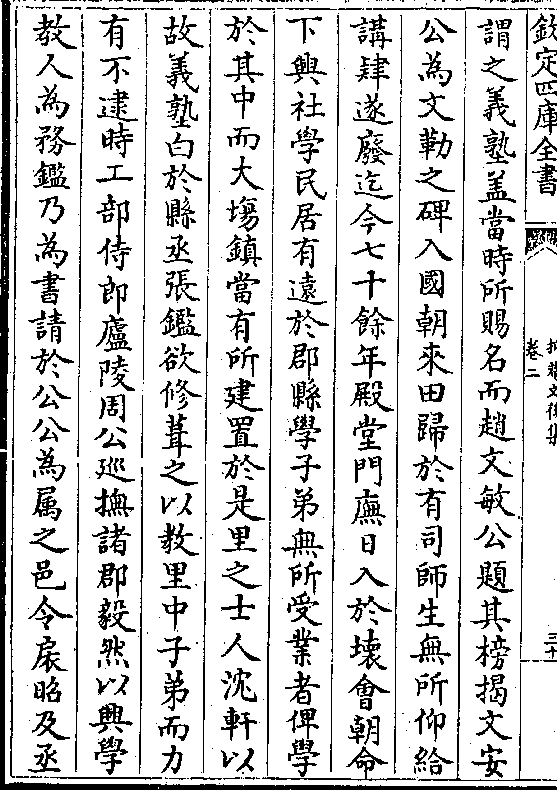 欽定四庫全書
卷二
謂之義塾盖當時所賜名而趙文敏公題其榜揭文安
公為文勒之碑入國朝來田歸於有司師生無所仰給
講肄遂廢迄今七十餘年殿堂門廡日入於壞會朝命
下興社學民居有遠於郡縣學子弟無所受業者俾學
於其中而大塲鎮當有所建置於是里之士人沈軒以
故義塾白於縣丞張鑑欲修葺之以教里中子弟而力
有不逮時工部侍郎廬陵周公廵撫諸郡毅然以興學
教人為務鑑乃為書請於公公為属之邑令扆昭及丞